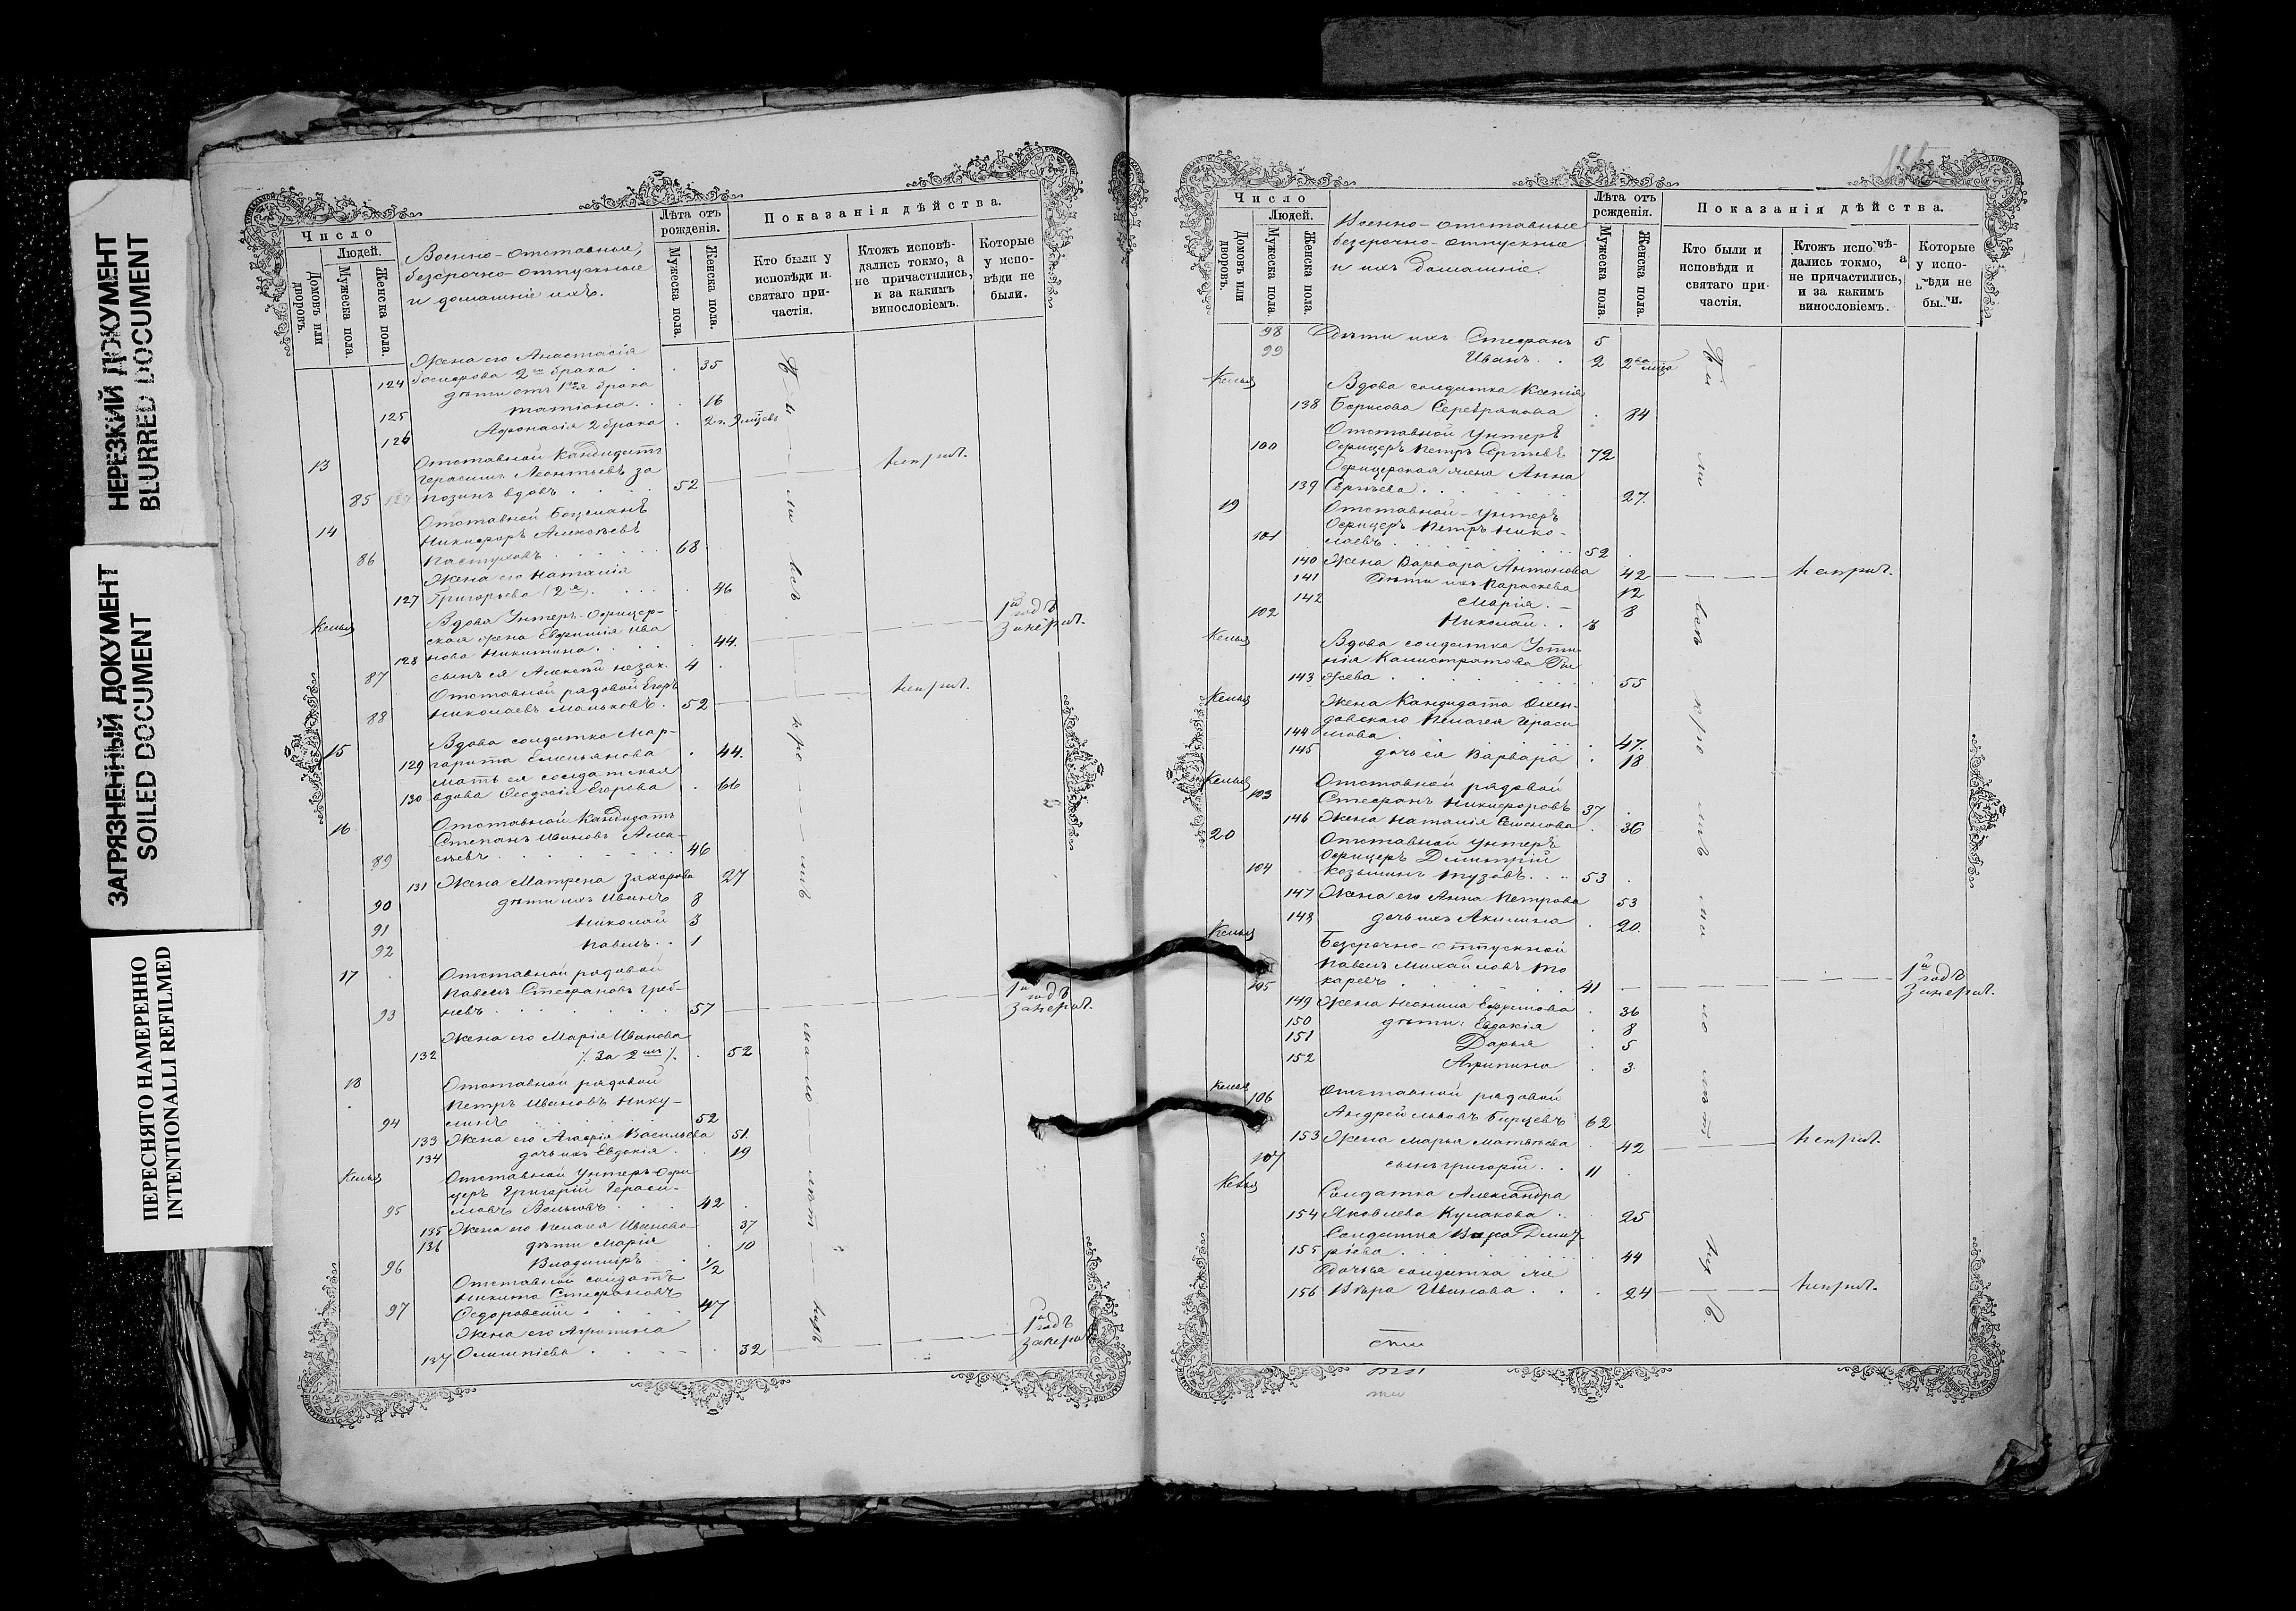 НЕРЕЗКИЙ ДОКУМЕНТ
BLURRED DOCUMENT
ЗАГРЯЗНЕННЫЙ ДОКУМЕНТ
SOILED DOCUMENT
ПЕРЕСНЯТО НАМЕРЕННО
INTENTIONALLI REFILMED
Число
Людей.
Домовъ или дворовъ.
Мужеска пола.
Женска пола.
Военно-отставные,
безсрочно-отпускные
и домашніе ихъ.
Лѣта отъ рожденія.
Мужеска пола.
Женска пола.
Показанія дѣйства.
Кто были у исповѣди и святаго причастія.
Ктожъ исповѣдались токмо, а не причастились, и за какимъ винословіемъ.
Которые у исповѣди не были.
Жена его Анастасія
124 2го брака . . 35
дѣти отъ 1го брака
125 Татіана . . 16
126 Афонасія 2 брака .
13 Отставной Кандидатъ
Герасимъ Леонтьевъ
85 вдовъ . . . 52
14 Отставной Боцманъ
Никифоръ Алексѣевъ
86 Пастуховъ . . . 68
Жена его Наталія
127 Григорьева (2я) . . . 46
Келья Вдова Унтеръ-Офицер-
ская жена Евфимія Ива
128 нова Никитина . . . 44.
87 сынъ ея Алексѣй незак. 4
Отставной рядовой Егоръ
88 Николаевъ Маньковъ . 52
15 Вдова солдатка Мар-
129 гарита Емельянова . 44.
мать ея солдатская
130 вдова Ѳеодосія Егорова . 66
16 Отставной Кандидатъ
Степанъ Ивановъ Алек-
89 сѣевъ . . . 46
131 Жена Матрена Захарова 27
90 дѣти ихъ Иванъ 8
91 Николай 3
92 Павелъ . . 1
17 Отставной рядовой
Павелъ Стефановъ Греб-
93 невъ . . . 57
Жена его Марія Иванова
132 /. За 2мъ /. . 52
18 Отставной рядовой
Петръ Ивановъ Нику-
94 линъ . . . 52
133 Жена его Агафія Васильева 51.
134 дочь ихъ Евдокія . . 19
Келья Отставной Унтеръ-Офи
церъ Григорій Гераси-
95 мовъ Волковъ . . . 42
135 Жена его Пелагея Иванова 37
136 дѣти Марія . 10
96 Владиміръ . 1/2
Отставной солдатъ
Никита Стефановъ
97 Ѳедоровскій . . . 47
Жена его Агрипина
137 Олимпіева . . . 32
1й годъ
Число
Людей.
Домовъ или дворовъ.
Мужеска пола.
Женска пола.
Военно-отставные
безсрочно-отпускные
и ихъ домашніе.
Лѣта отъ рожденія.
Мужеска пола.
Женска пола.
Показанія дѣйства.
Кто были и исповѣди и святаго причастія.
Ктожъ исповѣдались токмо, а не причастились, и за какимъ винословіемъ.
Которые у исповѣди не были.
98 Дѣти ихъ Стефанъ 5
99 Иванъ . . 2
Келья Вдова солдатка Ксенія
138 Борисова Серебрякова . 84
Отставной Унтеръ
100 Офицеръ Петръ Сергѣевъ 72
Офицерская жена Анна
139 Сергѣева . . . 27.
19 Отставной Унтеръ
Офицеръ Петръ Нико-
101 лаевъ . . . 52
140 Жена Варвара Антонова 42
141 Дѣти ихъ Параскева 12
142 Марія . 8
102 Николай . .
Келья Вдова солдатка Усти-
нія Калистратова
143 . . . 55
Келья Жена Кандидата
Пелагея Гераси
144 мова . . . 47.
145 дочь ея Варвара . 18
Келья Отставной рядовой
103 Стефанъ Никифоровъ 37
146 Жена Наталія Семенова . 36
20 Отставной Унтеръ
Офицеръ Димитрій
104 Козьминъ Тузовъ . . . 53
147 Жена его Анна Петрова 53
148 дочь ихъ Акилина . 20.
Келья Безсрочно-отпускной
Павелъ Михайловъ То
105 каревъ . . . 41
149 Жена Неонила Ефремова . 36
150 дѣти: Евдокія . 8
151 Дарья . 5
152 Агрипина . 3
Келья
106 Отставной рядовой
Андрей Львовъ 62
153 Жена Марья Матвѣева . 42
107 сынъ Григорій . . 11
Келья Солдатка Александра
154 Яковлева Кулакова . . 25
Солдатка Дмит
155 ріева . . . 44
156 Вѣра Иванова . . . 24
1й годъ